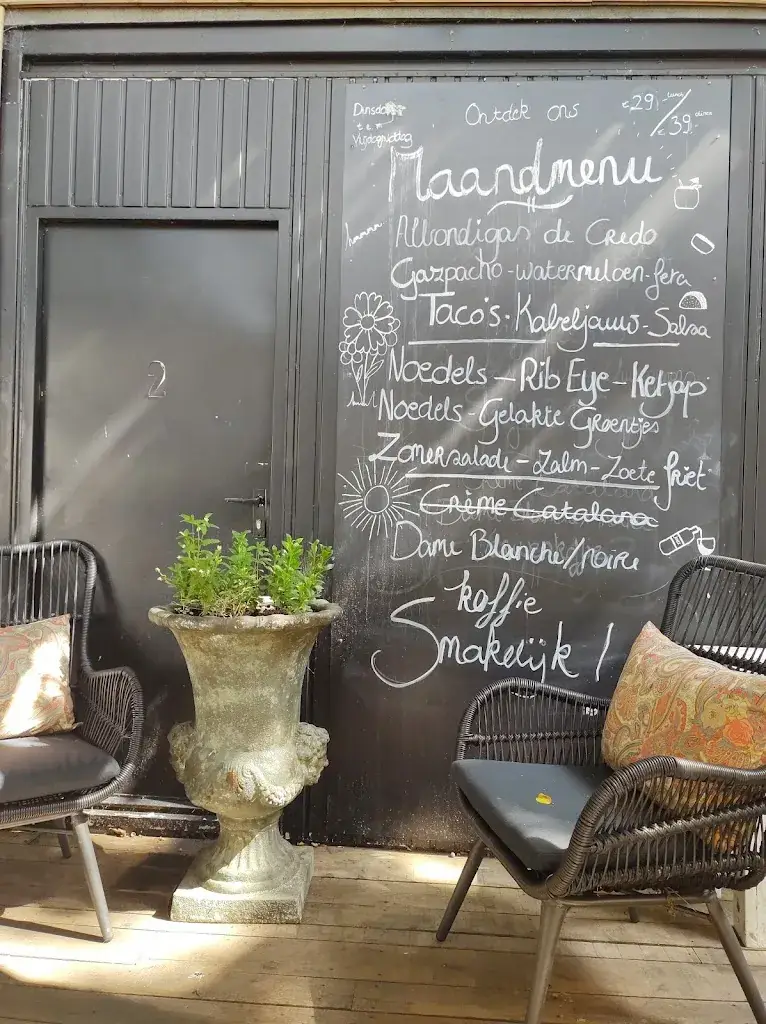 Dinsdag
t.e.m
Vrijdagmiddag
Ontdek ons
€29,- lunch
/ €39,- diner
Maandmenu
hmmm
Albondigas de Credo
Gazpacho - watermeloen - feta
Taco's - Kabeljauw - Salsa
Noedels - Rib Eye - Ketjap
Noedels - Gelakte Groentjes
Zomersalade - Zalm - Zoete friet
Crème Catalana
Dame Blanche/noire
koffie
Smakelijk !
2